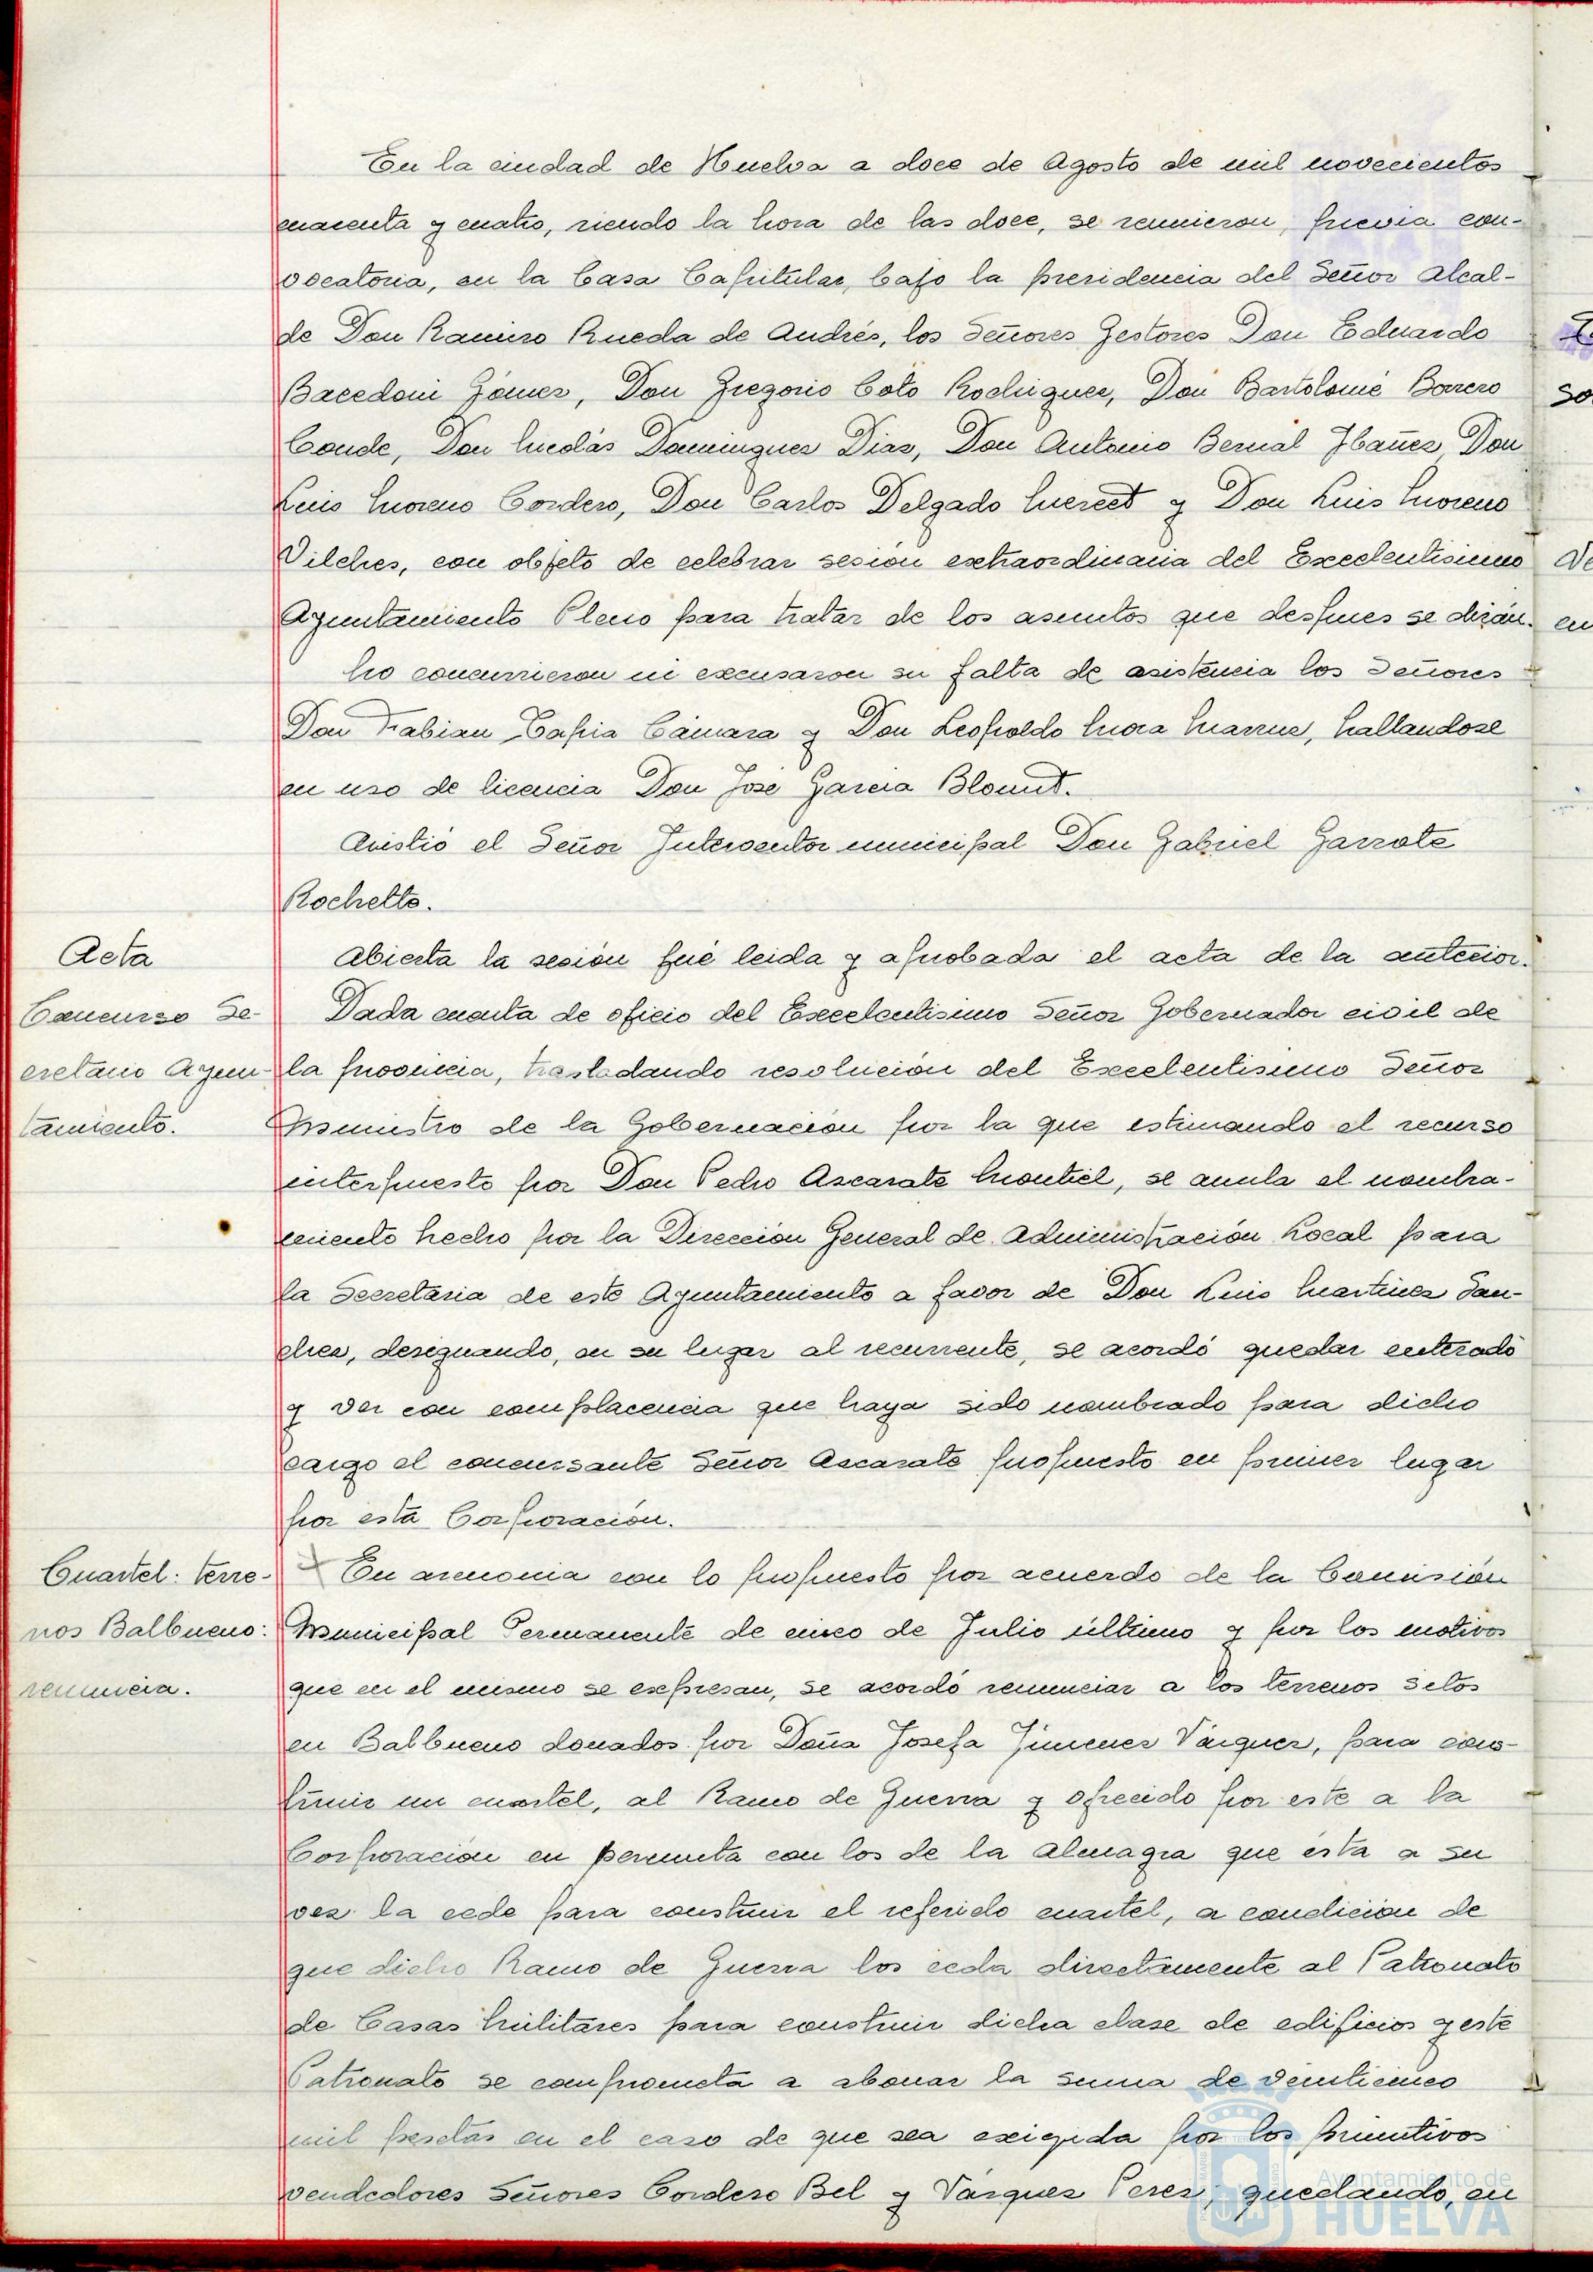 En la ciudad de Huelva a doce de Agosto de mil novecientos
cuarenta y cuatro, siendo la hora de las doce, se reunieron, previa con-
vocatoria, en la Casa Capitular, bajo la presidencia del Señor Alcal-
de Don Ramiro Rueda de Andrés, los Señores Gestores Don Eduardo
Bacedoni Gómez, Don Gregorio Coto Rodriguez, Don Bartolomé Borrero
Conde, Don Nicolás Dominguez Diaz, Don Antonio Bernal Ibañez, Don
Luis Moreno Cordero, Don Carlos Delgado Mercet y Don Luis Moreno
Vilches, con objeto de celebrar sesión extraordinaria del Excelentisimo
Ayuntamiento Pleno para tratar de los asuntos que despues se dirán.
No concurrieron ni excusaron su falta de asistencia los Señores
Don Fabian Tapia Cámara y Don Leopoldo Mora, hallandose
en uso de licencia Don José Garcia Blount.
Asistió el Señor Interventor municipal Don Gabriel Garrote
Rochette.
Acta
Abierta la sesión fué leida y aprobada el acta de la anterior.
Concurso Se-
cretario Ayun-
tamiento.
Dada cuenta de oficio del Excelentisimo Señor Gobernador civil de
la provincia, trasladando resolución del Excelentisimo Señor
Ministro de la Gobernación por la que estimando el recurso
interpuesto por Don Pedro Ascarate Montiel, se anula el nombra-
miento hecho por la Dirección General de Administración Local para
la Secretaria de este Ayuntamiento a favor de Don Luis Martinez San-
chez, designando, en su lugar al recurrente, se acordó quedar enterado
y ver con complacencia que haya sido nombrado para dicho
cargo el concursante Señor Ascarate propuesto en primer lugar
por esta Corporación.
Cuartel: terre-
nos Balbueno:
renuncia.
En armonia con lo propuesto por acuerdo de la Comisión
Municipal Permanente de cinco de Julio último y por los motivos
que en el mismo se expresan, se acordó renunciar a los terrenos sitos
en Balbueno donados por Doña Josefa Jimenez Vázquez, para cons-
truir un cuartel, al Ramo de Guerra y ofrecido por este a la
Corporación en permuta con los de la Almagra que ésta a su
vez la cede para construir el referido cuartel, a condición de
que dicho Ramo de Guerra los ceda directamente al Patronato
de Casas Militares para construir dicha clase de edificios y este
Patronato se comprometa a abonar la suma de veinticinco
mil pesetas en el caso de que sea exigida por los primitivos
vendedores Señores Cordero Bel y Vázquez Perez, quedando, en
Ayuntamiento de
HUELVA